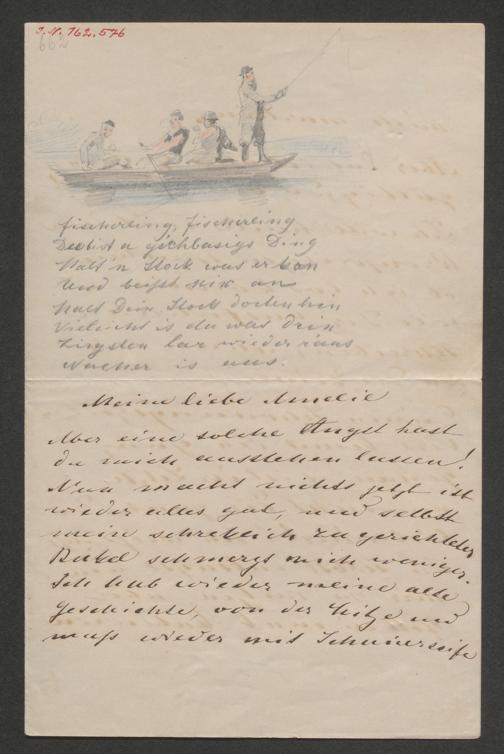 I.N. 762.576
662
fischerling, fischerling
Du bist a gschbasigs Ding
Halt'n Stock was er kan
Und beißt nix an
Halt Dein Stock dorten hin
Vieleicht is da was drin
lar wieder raus
Nacher is aus.
Meine liebe Amelie
Aber eine solche Angst hast
du mich ausstehen lassen!
Nun macht nichts jetzt ist
wieder alles gut, und selbst
mein schreklich zugerichteter
Bukel schmerzt mich weniger.
Ich hab wieder meine alte
Geschichte, von der Hitze und
muß wieder mit Schmierseife